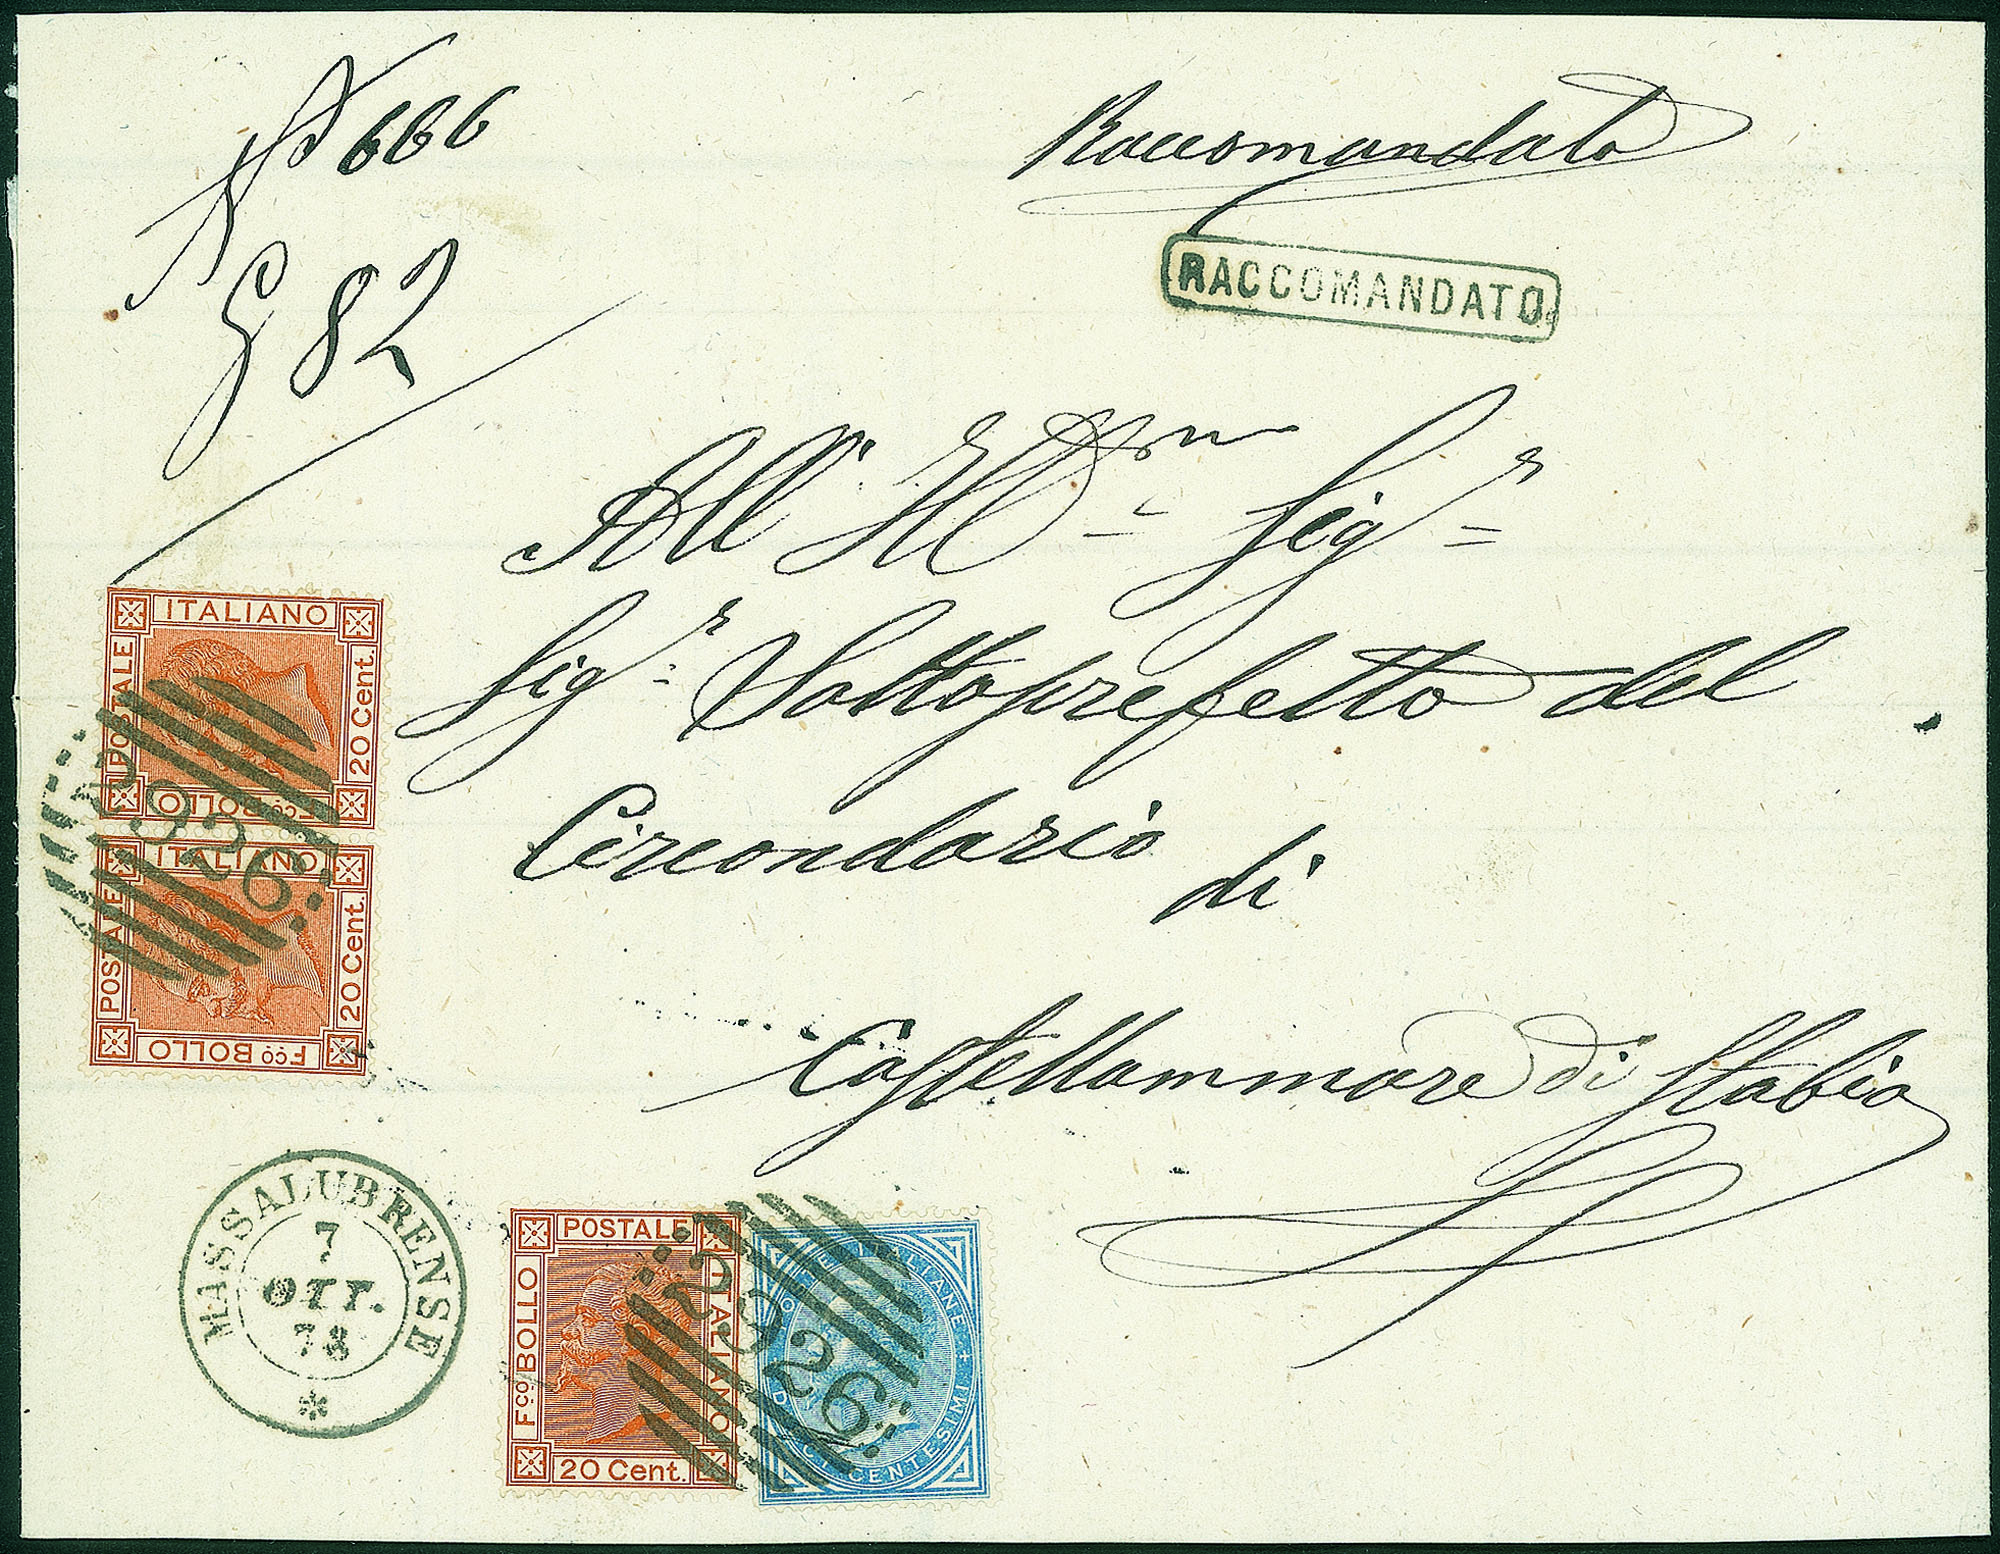 N° 666
G 82
Raccomandato
RACCOMANDATO
All' Ill.mo Sig.r
Sig.r Sottoprefetto del
Circondario di
Castellammare di Stabia
ITALIANO
POSTALE
20 Cent.
Fco BOLLO
2326
ITALIANO
POSTALE
20 Cent.
Fco BOLLO
MASSALUBRENSE
7
OTT.
78
POSTALE
Fco BOLLO
ITALIANO
20 Cent.
2326
CENTESIMI